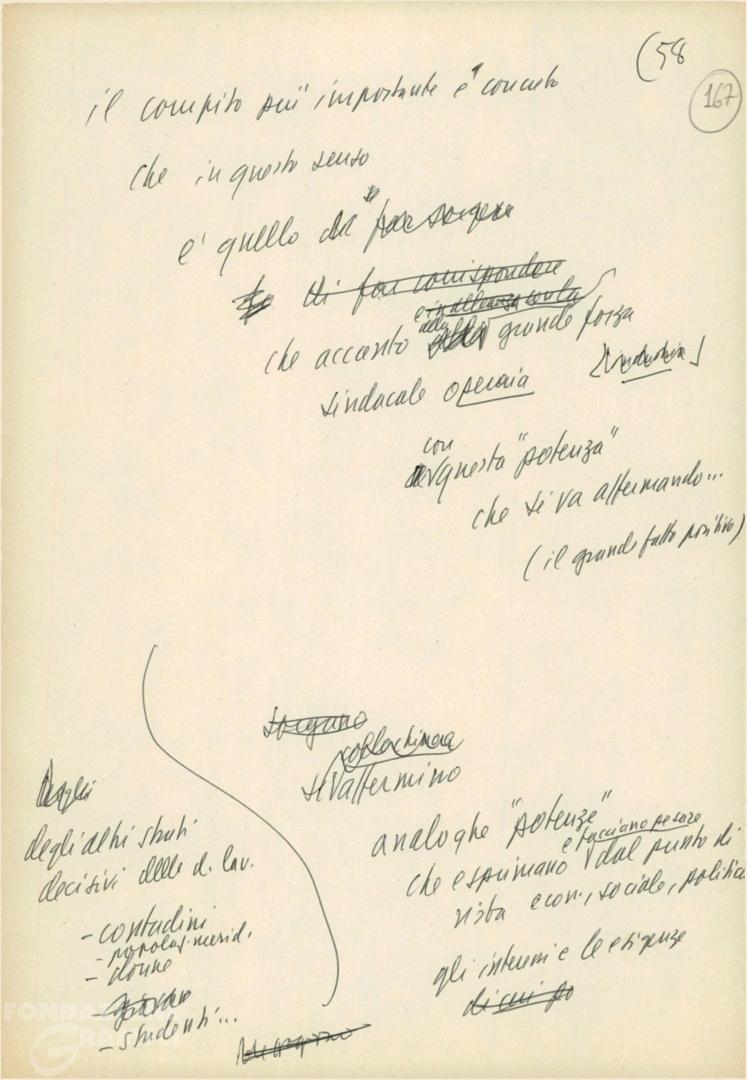 (58
167
il compito più importante e concreto
che in questo senso
è quello di far sorgere
di far corrispondere
e in alleanza con la
che accanto alla grande forza
sindacale operaia [industria]
con questa "potenza"
che si va affermando...
(il grande fatto positivo)
sorgano
si affermino
analoghe "potenze"
e facciano pesare
che esprimano dal punto di
vista econ., sociale, politica
gli interessi e le esigenze
di cui
degli altri strati
decisivi delle d. lav.
- contadini
- popolaz. merid.
- donne
- giovani
- studenti...
FONDAZIONE
GRAMSCI